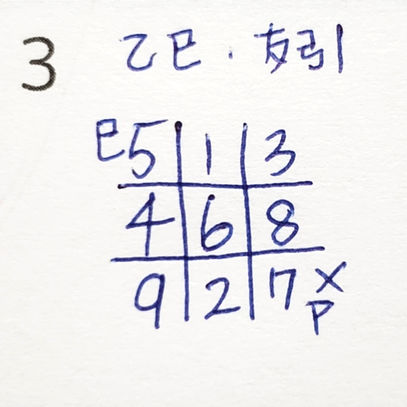 3
乙巳・友引
巳 5 1 3
4 6 8
9 2 7 ×
P